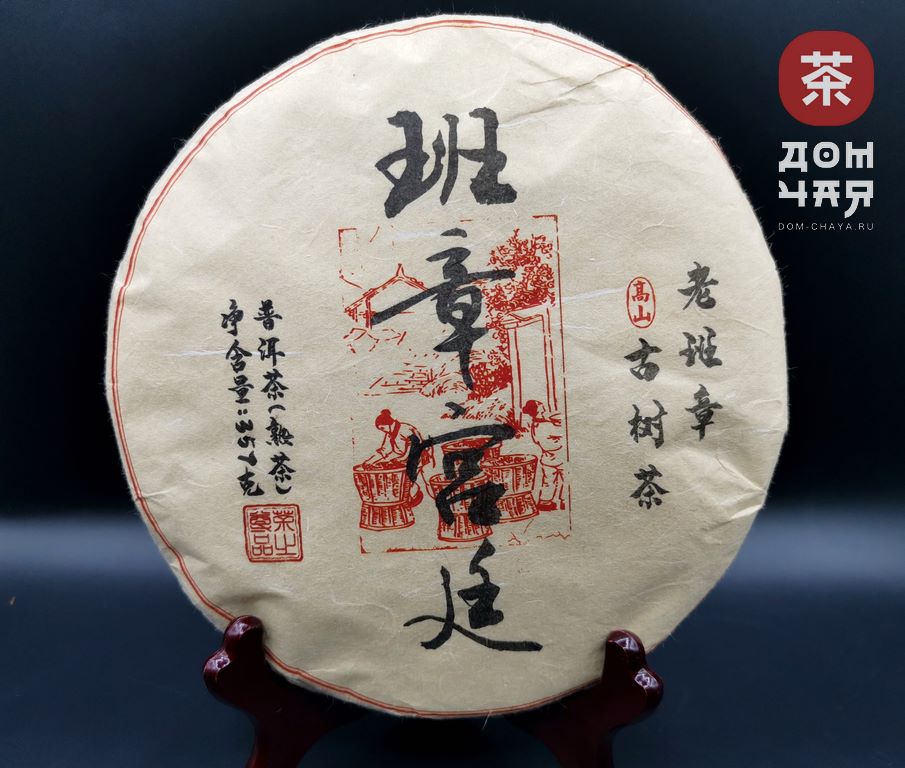 班章宫廷
老班章
高山
古树茶
普洱茶(熟茶)
净含量:357克
茶
ДОМ
ЧАЯ
DOM-CHAYA.RU